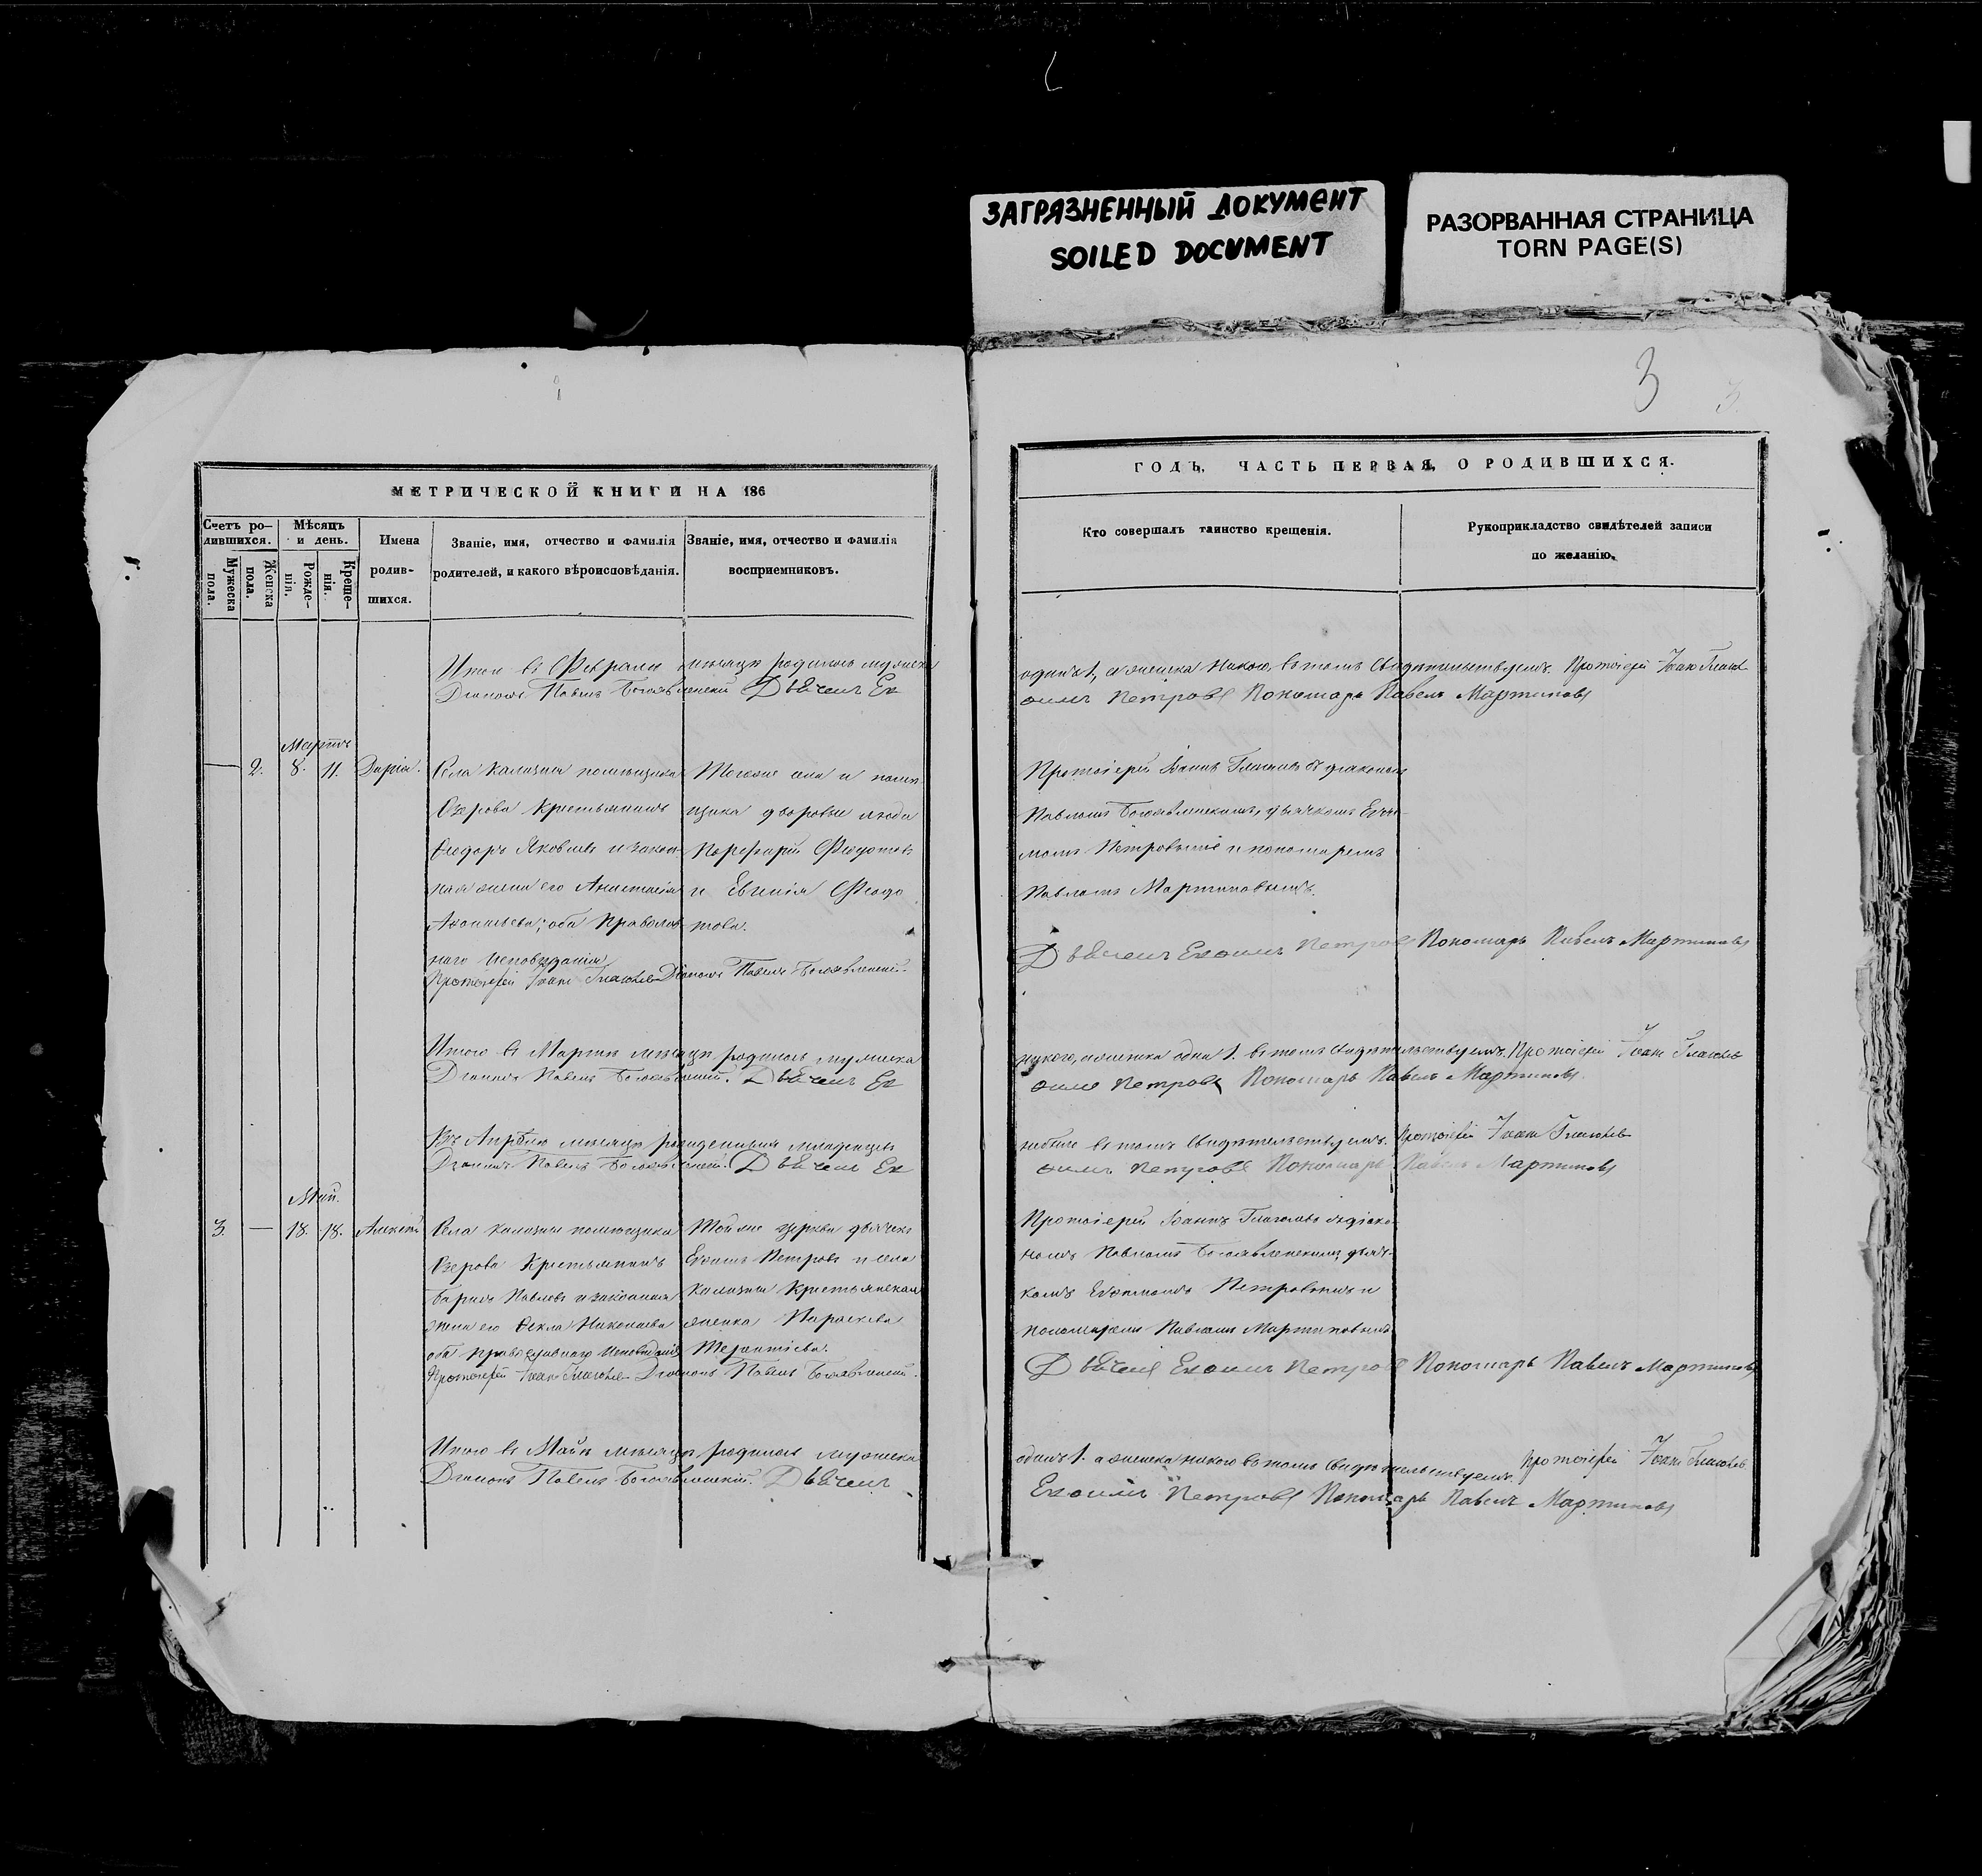 ЗАГРЯЗНЕННЫЙ ДОКУМЕНТ
SOILED DOCUMENT
РАЗОРВАННАЯ СТРАНИЦА
TORN PAGE(S)
3
3.
МЕТРИЧЕСКОЙ КНИГИ НА 186
Счетъ ро-
дившихся.
Мужеска
пола.
Женска
пола.
Мѣсяцъ
и день.
Рожде-
нія.
Креще-
нія.
Имена
родив-
шихся.
Званіе, имя, отчество и фамилія
родителей, и какого вѣроисповѣданія.
Званіе, имя, отчество и фамилія
восприемниковъ.
Итого въ Февралѣ мѣсяцѣ родилось мужеска
Діаконъ Павелъ Богоявленскій Дьячекъ Ев
Мартъ
— 2. 8. 11. Дарія.
Села помѣщика
Озерова Крестьянинъ
Ѳеодоръ Яковлевъ и закон-
ная жена его Анастасія
оба Православ
наго Исповѣданія
Тогоже села и помѣ
щика дворовые люди
Порфирій Федотовъ
и Евгенія Федо
това.
Протоіерей Іоаннъ Глаголевъ Діаконъ Павелъ Богоявленскій.
Итого въ Мартѣ мѣсяцѣ родилось мужеска
Діаконъ Павелъ Богоявленскій. Дьячекъ Ев
Въ Апрѣлѣ мѣсяцѣ рожденныхъ младенцевъ
Діаконъ Павелъ Богоявленскій. Дьячекъ Ев
Май.
3. — 18. 18. Алексій
Села помѣщика
Озерова Крестьянинъ
Павловъ и законная
жена его Ѳекла Николаева
оба православнаго Исповѣданія
Тойже церкви дьячекъ
Евѳимъ Петровъ и села
Крестьянская
женка Параскева
Терентіева.
Протоіерей Іоаннъ Глаголевъ Діаконъ Павелъ Богоявленскій.
Итого въ Маѣ мѣсяцѣ родилось мужеска
Діаконъ Павелъ Богоявленскій. Дьячекъ
ГОДЪ, ЧАСТЬ ПЕРВАЯ, О РОДИВШИХСЯ.
Кто совершалъ таинство крещенія.
Рукоприкладство свидѣтелей записи
по желанію.
одинъ 1, а женска никого, въ томъ свидѣтельствуемъ. Протоіерей Іоаннъ Глаголевъ
ѳимъ Петровъ Пономарь Павелъ Мартиновъ
Протоіерей Іоаннъ Глаголевъ съ діакономъ
Павломъ Богоявленскимъ, дьячкомъ Евѳи-
момъ Петровымъ и пономаремъ
Павломъ Мартиновымъ.
Дьячекъ Евѳимъ Петровъ Пономарь Павелъ Мартиновъ
никого, женска одна 1. въ томъ свидѣтельствуемъ. Протоіерей Іоаннъ Глаголевъ
ѳимъ Петровъ Пономарь Павелъ Мартиновъ.
небыло въ томъ свидѣтельствуемъ. Протоіерей Іоаннъ Глаголевъ
ѳимъ Петровъ Пономарь Павелъ Мартиновъ
Протоіерей Іоаннъ Глаголевъ съ діако-
номъ Павломъ Богоявленскимъ, дьяч-
комъ Евѳимомъ Петровымъ и
пономаремъ Павломъ Мартиновымъ
Дьячекъ Евѳимъ Петровъ Пономарь Павелъ Мартиновъ
одинъ 1. а женска никого въ томъ свидѣтельствуемъ. Протоіерей Іоаннъ Глаголевъ
Евѳимъ Петровъ Пономарь Павелъ Мартиновъ